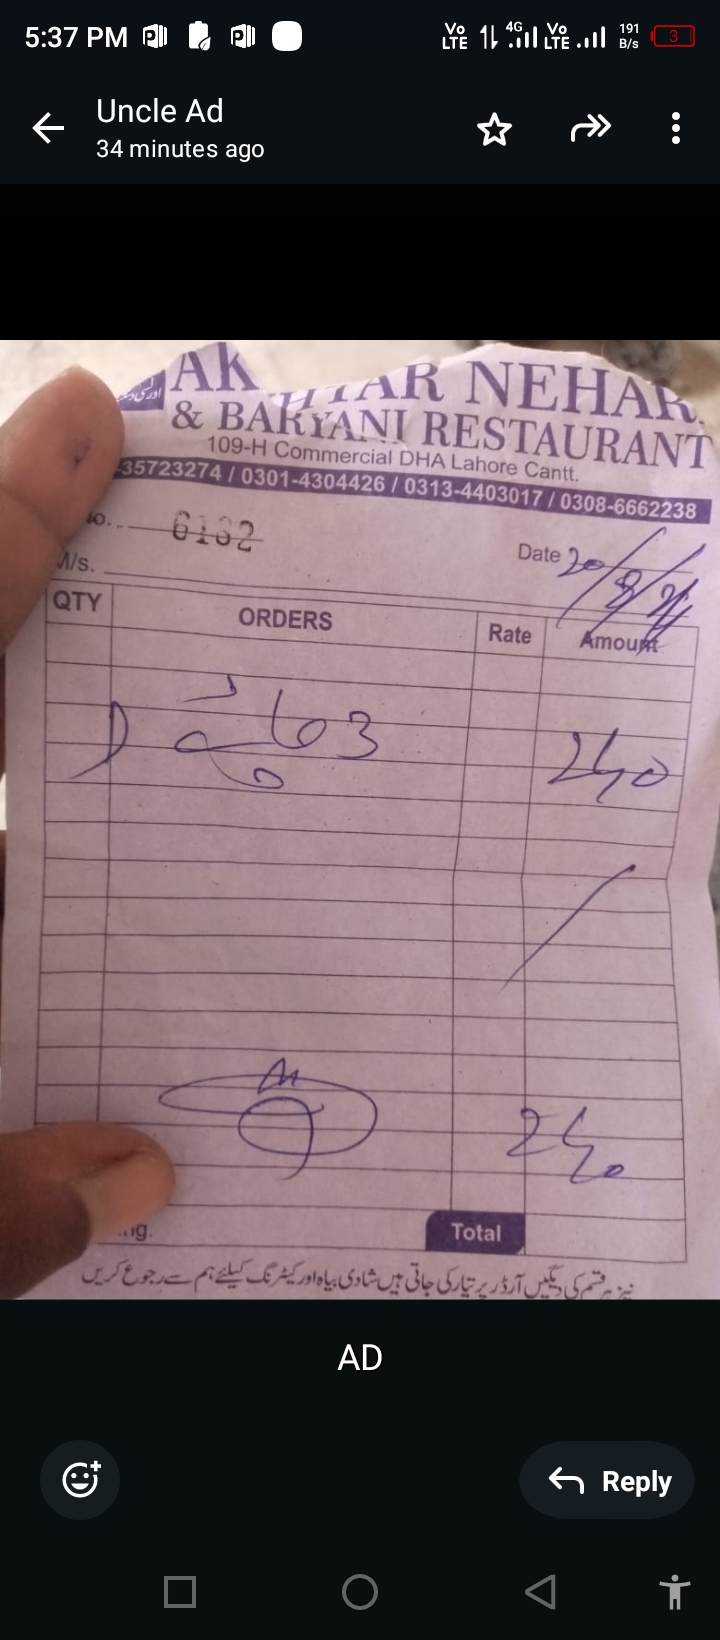 5:37 PM VoLTE 4G VoLTE 191 B/s 3
Uncle Ad
34 minutes ago
AKHTAR NEHAR
& BARYANI RESTAURANT
109-H Commercial DHA Lahore Cantt.
35723274 / 0301-4304426 / 0313-4403017 / 0308-6662238
No. 6182
Date 20/8/
M/s.
QTY ORDERS Rate Amount
3 240
240
Total
نیز ہر قسم کی دیگیں آرڈر پر تیار کی جاتی ہیں شادی بیاہ اور کیٹرنگ کیلئے ہم سے رجوع کریں
AD
Reply